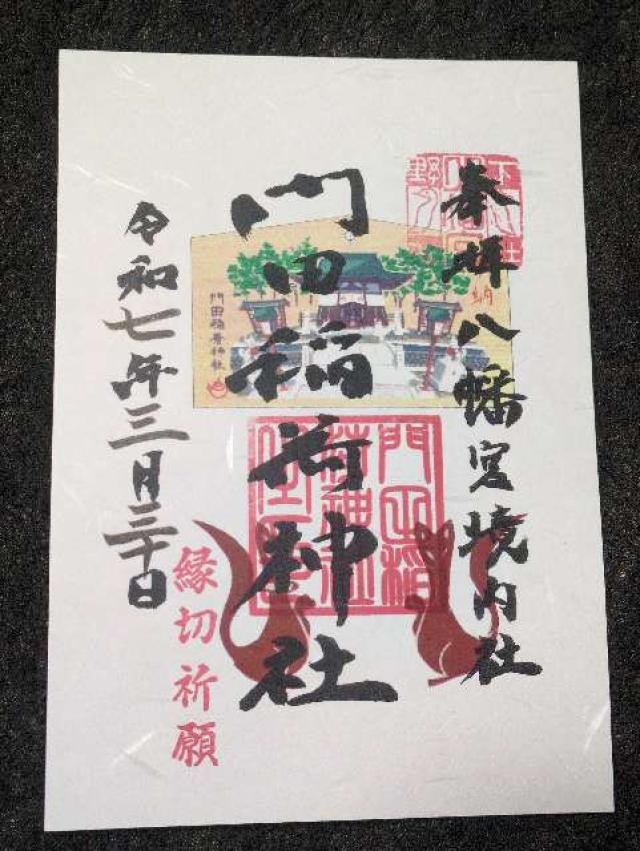 奉拝 八幡宮境内社
奉納
門田稲荷神社
門田稲荷神社
令和七年三月三十日
縁切祈願